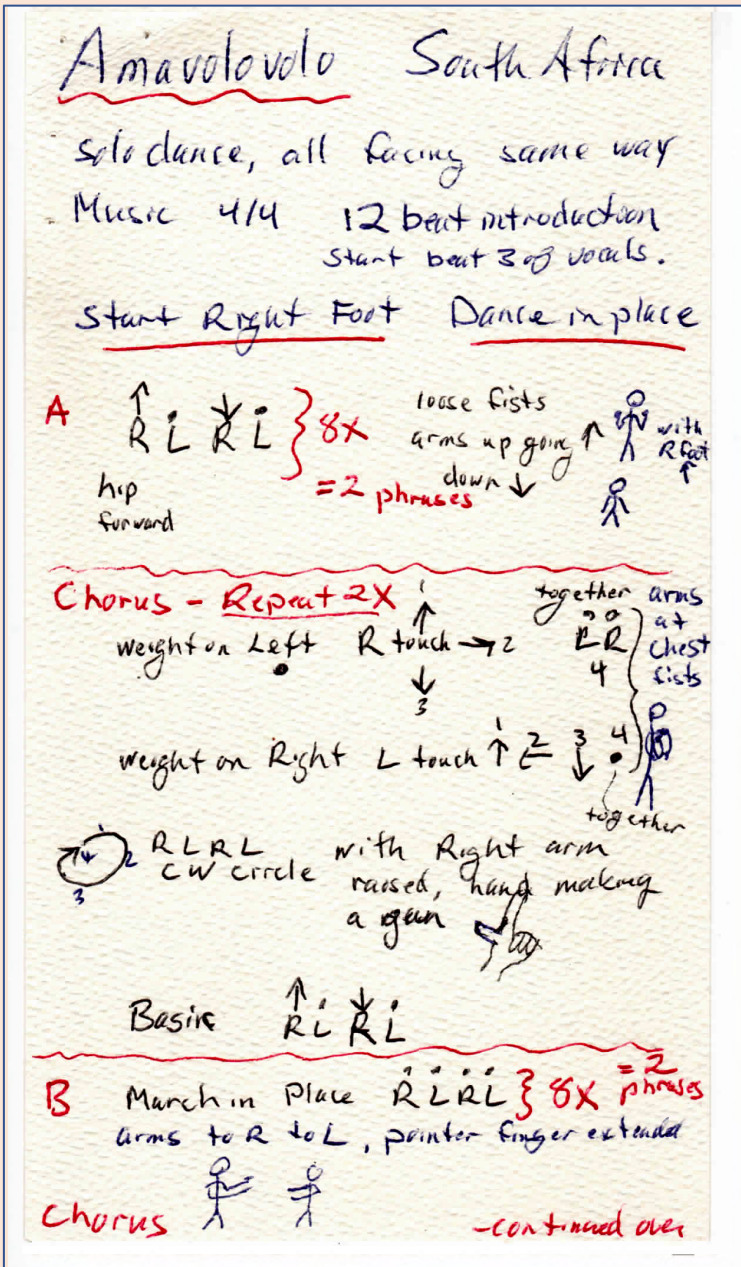 Amavolovolo South Africa
Solo dance, all facing same way
Music 4/4 12 beat introduction
Start beat 3 of vocals.
Start Right Foot Dance in place
A ↑ • ↓ •
R L R L } 8X
= 2 phrases
hip
forward
loose fists
arms up going ↑
down ↓
with
R foot
↑
Chorus - Repeat 2X
weight on Left R touch ↑ 1 → 2 ↓ 3
together
L R
4
arms
at
chest
fists
weight on Right L touch 1 ↑ 2 ← 3 ↓ 4 •
together
1 2 3 4 R L R L
CW circle
with Right arm
raised, hand making
a gun
Basic ↑ • ↓ •
R L R L
B March in Place R L R L } 8X = 2
phrases
arms to R to L, pointer finger extended
Chorus
-continued over